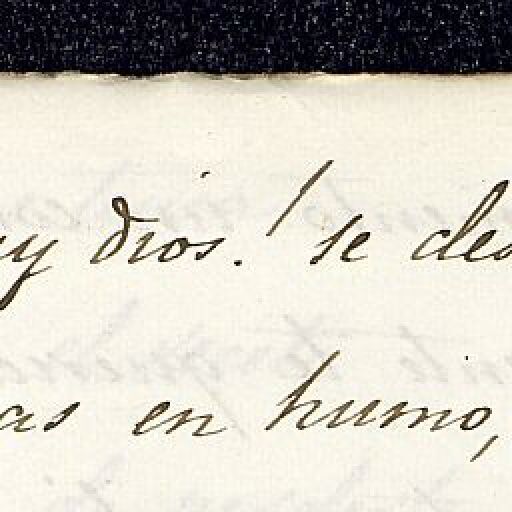 uy dios! se des
as en humo,